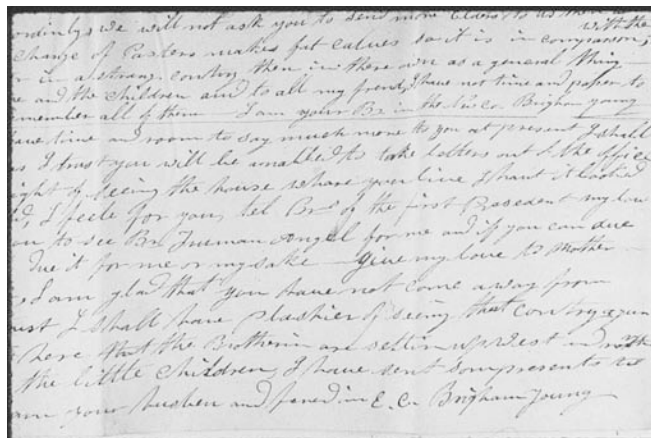 ordingly we will not ask you to send more Elders to us then is
with the
change of Pasters makes fat calves so it is in comparison,
r in a strang contry then in there own as a general thing
me and the children and to all my frends, I have not time and paper to
member all of them I am your Br in the Brigham young
have time and room to say much more to you at present I shall
as I trust you will be unabled to take letters out of the office
ight of seeing the house whare you live I hant it looked
d, I feele for you, tel Brs of the first Presedent my love
ou to see Br Trueman Angel for me and if you can due
due it for me or my sake Give my love to Mother
I am glad that you have not come a way from
ust I shall have plashier of seeing that contry agun
t here that the Brotherin are setlin up west and north
the little children, I have sent som presents to
am your husben and frend in E. C. Brigham Young